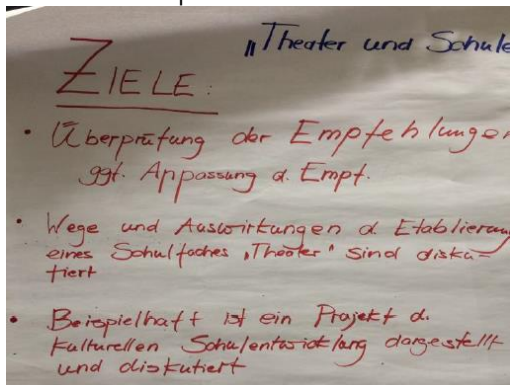 „Theater und Schule
ZIELE:
• Überprüfung der Empfehlungen
ggf. Appassung d. Empf.
• Wege und Auswirkungen d. Etablierung
eines Schulfaches „Theater“ sind disku-
tiert
• Beispielhaft ist ein Projekt d.
kulturellen Schulentwicklung dargestellt
und diskutiert